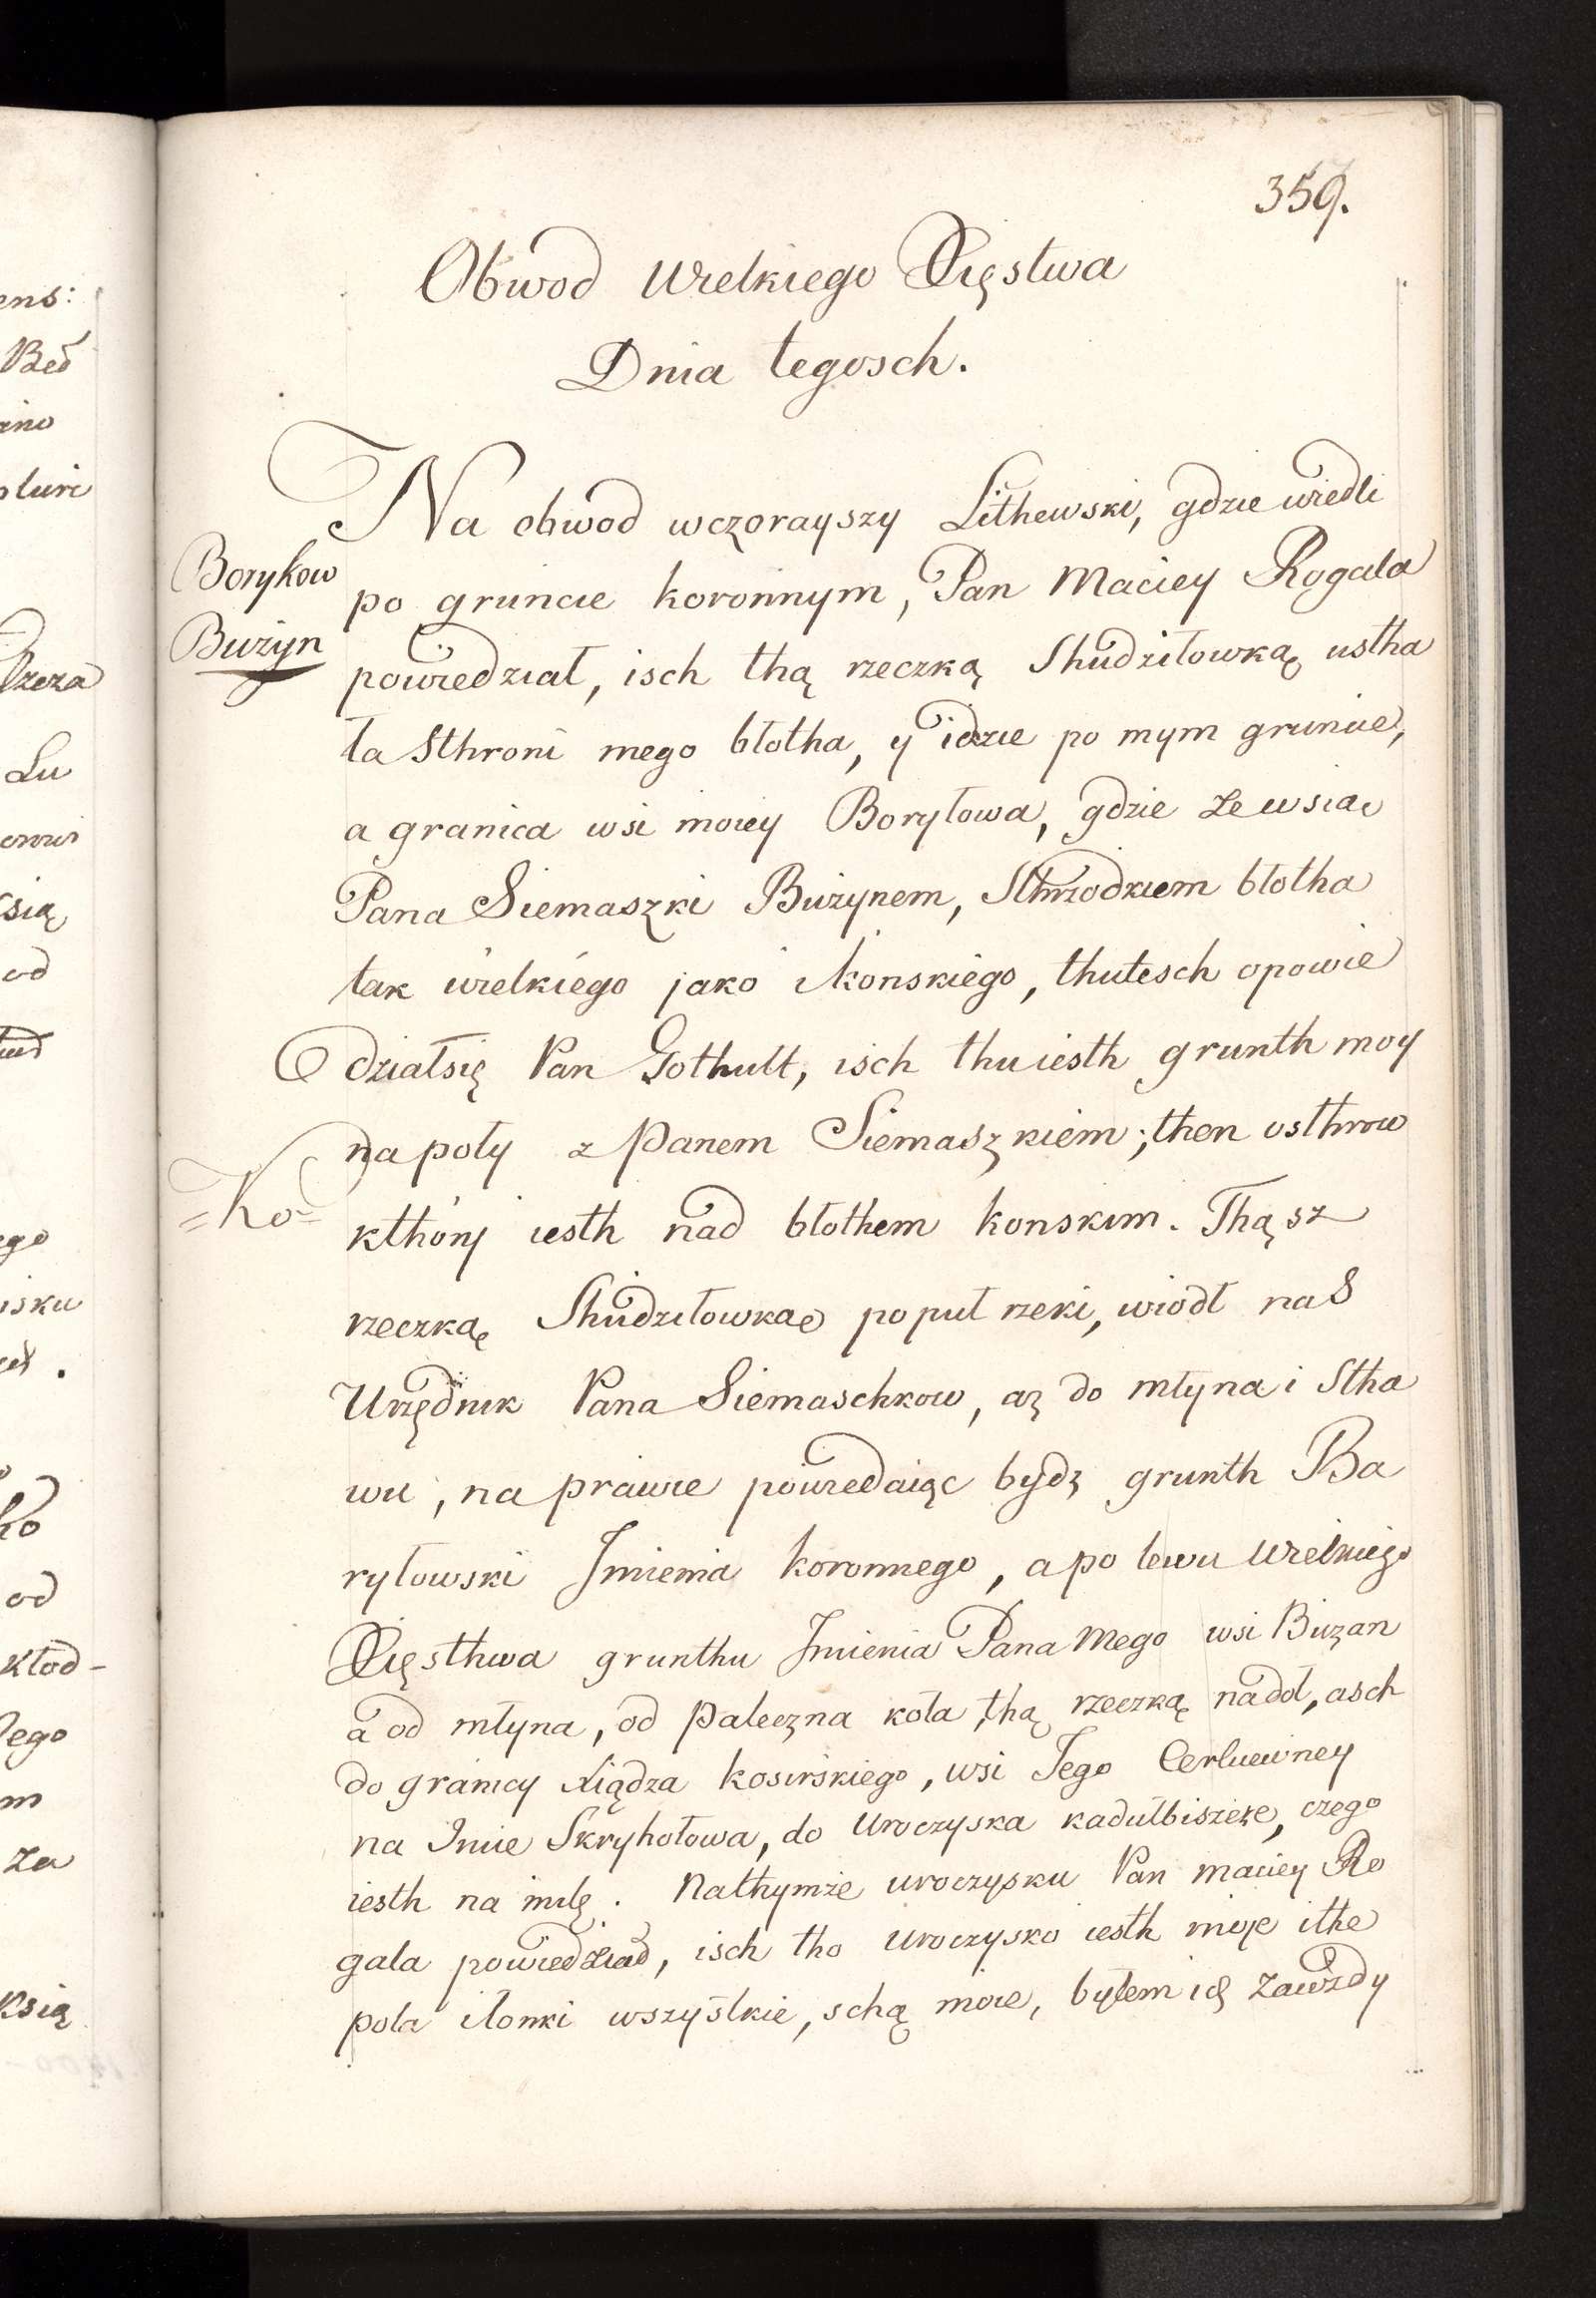 359.
Obwod Wielkiego Xięstwa
Dnia tegosch.
Na obwod wczorayszy Lithewski, gdzie wiedli
Borykow
po gruncie koronnym, Pan Maciey Rogala
Bużyn
powiedział, isch thą rzeczką Shudziłowką ustha
ła Sthroni mego błotha, y idzie po mym gruncie,
a granica wsi moiey Boryłowa, gdzie ze wsią
Pana Siemaszki Bużynem, Sthrzodkiem błotha
tak wielkiego jako ikonskiego, thutesch opowie
działsię Pan Gothult, isch thu iesth grunth moy
na poły z Panem Siemaszkiem; then osthrow
=Ko=
kthóry iesth nad błothem konskim. Thąsz
rzeczką Shudziłowką po puł rzeki, wiódł naS
Urzędnik Pana Siemaschkow, aż do młyna i Stha
wu, na prawie powiedaiąc bydź grunth Ba
ryłowski Imienia koronnego, a po lewu Wielkiego
Xięsthwa grunthu Imienia Pana Mego wsi Buzan
a od młyna, od paleczna koła, thą rzeczką nadoł, asch
do granicy Xiądza kosirskiego, wsi Jego Cerkiewney
na Imie Skryhołowa, do Uroczyska kadułbiszeze, czego
iesth na milę. Nathymże uroczysku Pan Maciey Ro
gala powiedział, isch tho Uroczysko iesth moje ithe
pola iłonki wszystkie, schą moie, byłem ich zawżdy